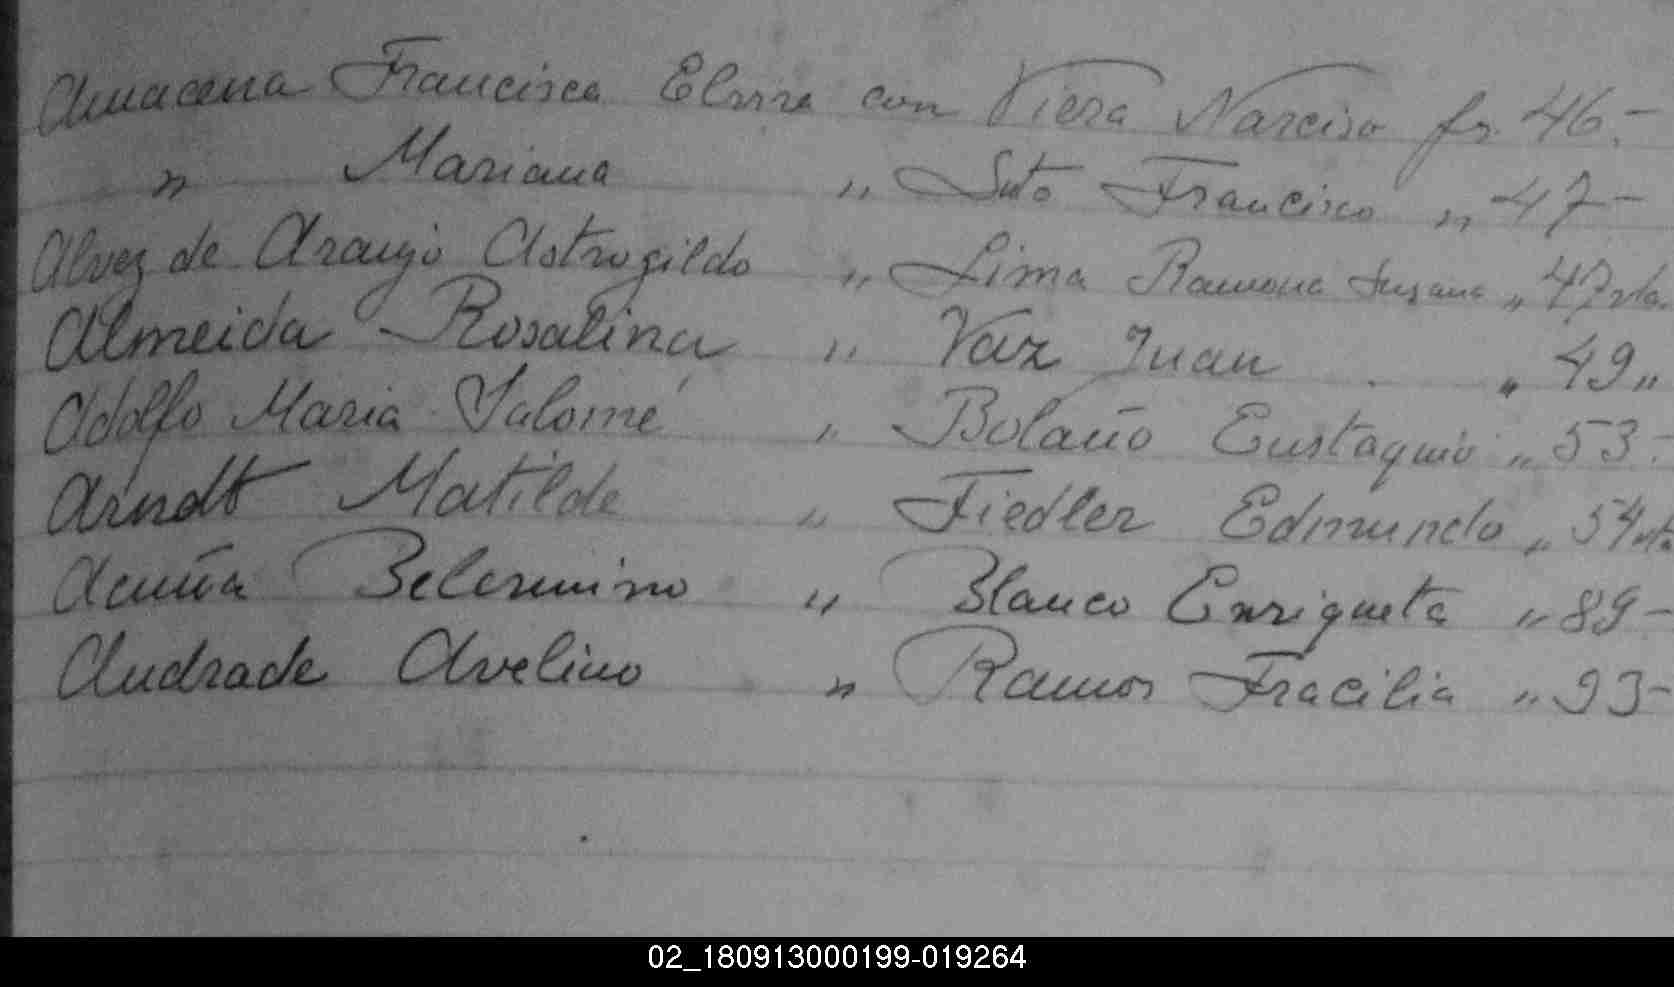 Amacena Francisca Elvira con Viera Narciso fs. 46.-
" Mariana " Suto Francisco " 47-
Alvez de Araujo Astrogildo " Lima Ramona Susana " 47 vta.
Almeida Rosalina " Vaz Juan " 49 "
Adolfo Maria Salomé " Bolaño Eustaquio " 53.-
Arndt Matilde " Fiedler Edmundo " 54 vta
Acuña Belermino " Blanco Enriqueta " 89-
Andrade Avelino " Ramos Fracilia " 93-
02_180913000199-019264